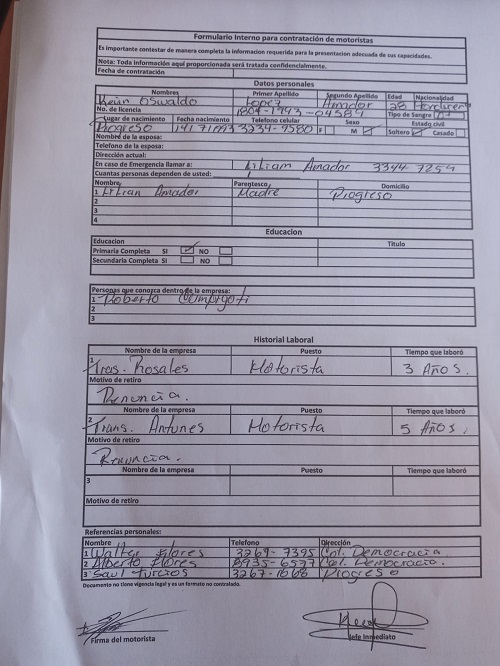 Formulario Interno para contratación de motoristas
Es importante contestar de manera completa la informacion requerida para la presentacion adecuada de sus capacidades.
Nota: Toda información aqui proporcionada será tratada confidencialmente.
Fecha de contratación
Datos personales
Nombres Primer Apellido Segundo Apellido Edad Nacionalidad
Kevin Oswaldo Lopez Amador 28
No. de licencia 1804-1993-04584 Tipo de Sangre
Lugar de nacimiento Fecha nacimiento Telefono celular Sexo Estado civil
Progreso 14/7/1993 3234-9580 F M Soltero Casado
Nombre de la esposa:
Telefono de la esposa:
Dirección actual:
En caso de Emergencia llamar a: Lilian Amador 3344-7254
Cuantas personas dependen de usted: 1
Nombre Parentesco Domicilio
1 Lilian Amador Madre Progreso
2
3
4
Educacion
Educacion Titulo
Primaria Completa SI NO
Secundaria Completa SI NO
Personas que conozca dentro de la empresa:
1 Roberto
2
3
Historial Laboral
Nombre de la empresa Puesto Tiempo que laboró
1 Tras. Rosales Motorista 3 Años.
Motivo de retiro
Renuncia.
Nombre de la empresa Puesto Tiempo que laboró
2 Trans. Antunes Motorista 5 Años.
Motivo de retiro
Renuncia.
Nombre de la empresa Puesto Tiempo que laboró
3
Motivo de retiro
Referencias personales:
Nombre Telefono Dirección
1 Walter Flores 3269-7395 Col. Democracia.
2 Alberto Flores 8935-6577 Col. Democracia.
3 Saul Turcios 3267-1668 Progreso
Documento no tiene vigencia legal y es un formato no controlado.
Firma del motorista Jefe Inmediato